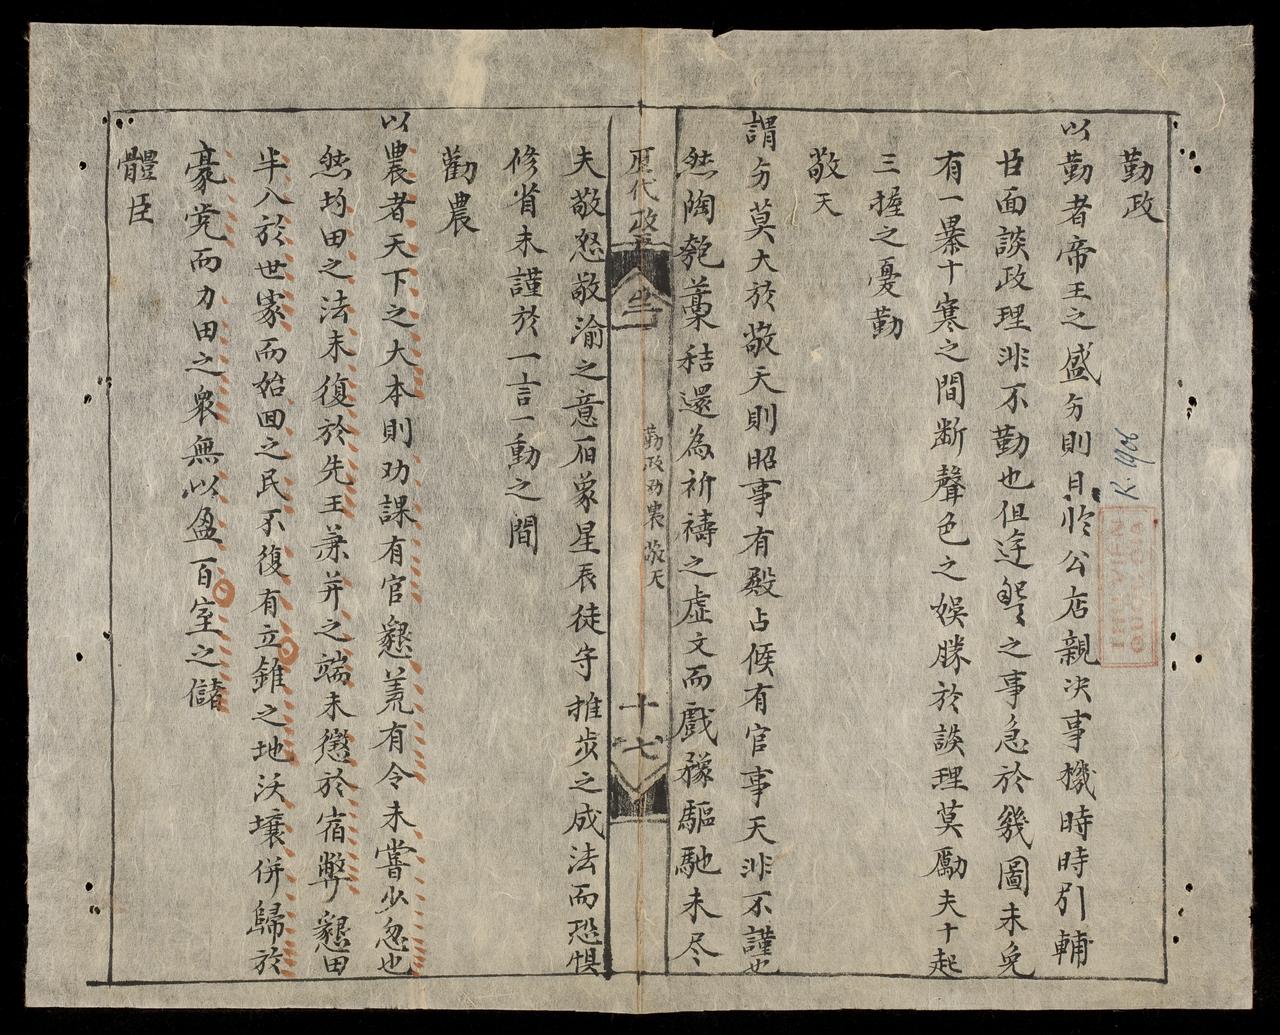 勤政
以勤者帝王之盛夯則日於公店親决事機時時引輔
臣面談政理非不勤也但逹之事急於幾圖未免
有一暴十寒之間断聲色之娛勝於談理莫勵夫十起
三握之憂勤
敬天
謂夯莫大於敬天則昭事有殿占候有官事天非不謹也
然陶匏藁秸還為祈禱之虚文而戲豫驅馳未尽
歷代政要
勤政劝農敬天
十七
夫敬怒敬渝之意曆象星辰徒守推步之成法而恐惧
修省未謹於一言一動之間
勸農
以農者天下之大本則劝課有官懇荒有令未嘗少忽也
然均田之法未復於先王兼并之端未懲於宿弊懇田
半入於世家而始田之民不復有立錐之地沃壌併歸於
豪党而力田之衆無以盈百室之儲
體臣
R.1906
THU VIEN
QUOC GIA